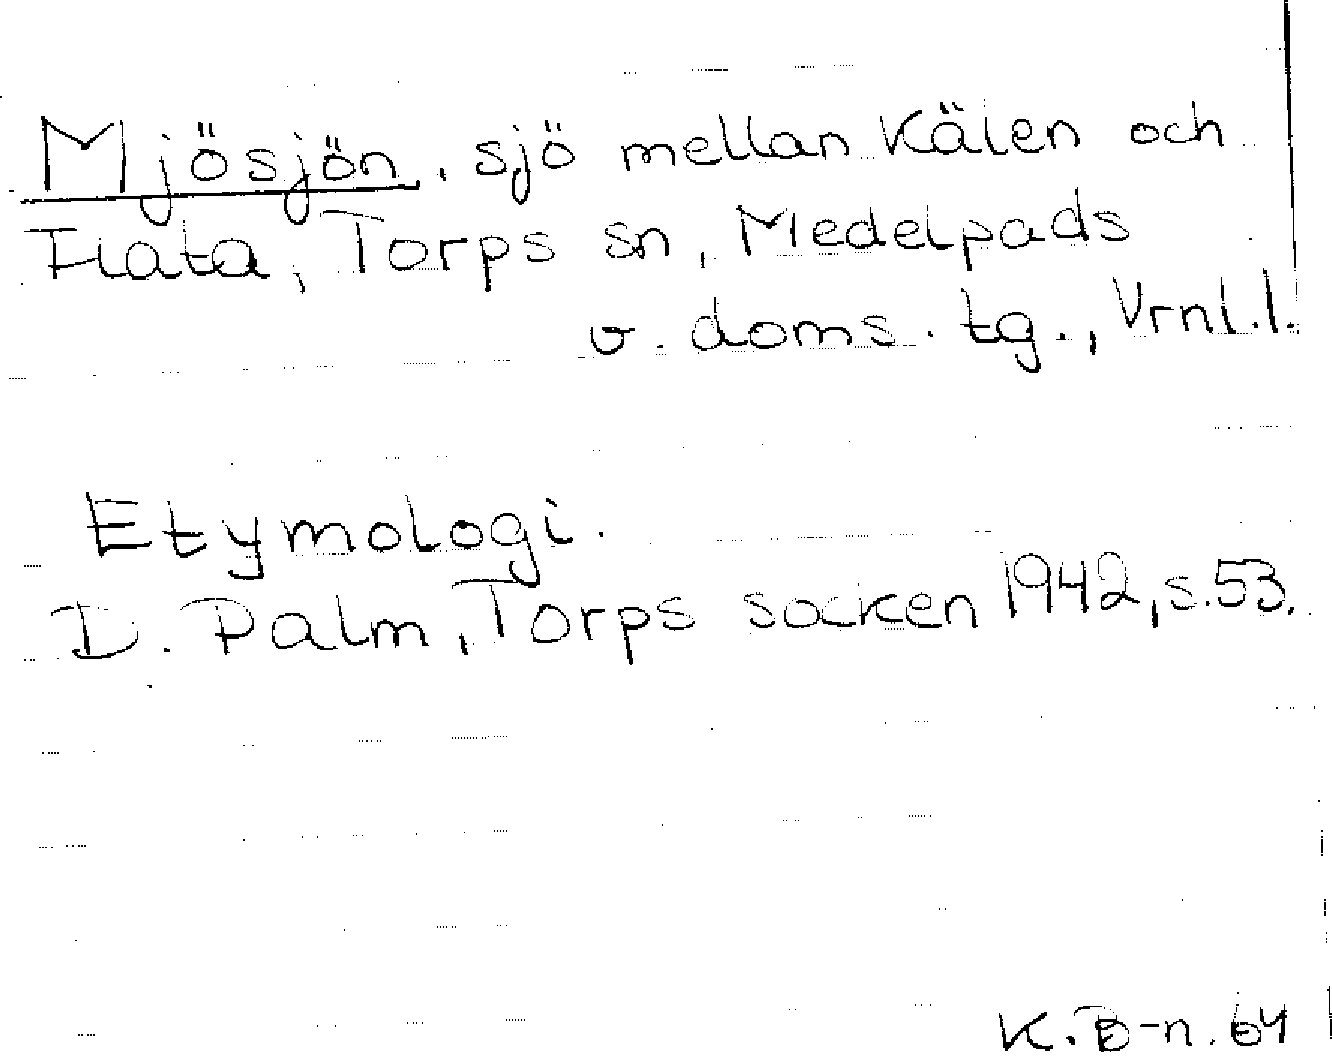 Mjösjön, sjö mellan Kälen och
Flata, Torps sn, Medelpads
v. doms. tg., Vrnl. l.
Etymologi.
D. Palm, Torps socken 1942, s. 53.
K. B-n. 64